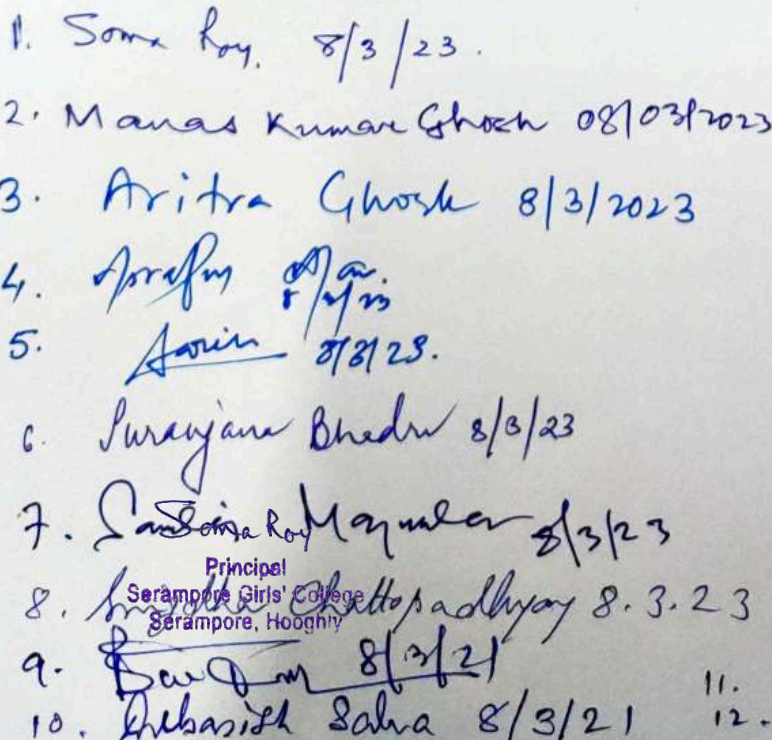 1. Soma Roy. 8/3/23.
2. Manas Kumar Ghosh 08/03/2023
3. Aritra Ghosh 8/3/2023
4.
5. 8/3/23.
6. Suranjana Bhadra 8/3/23
7. Majumdar 8/3/23
Soma Roy
Principal
Serampore Girls' College
Serampore, Hooghly
8. Chattopadhyay 8.3.23
9. 8/3/21
10. Debasish Saha 8/3/21
11.
12.